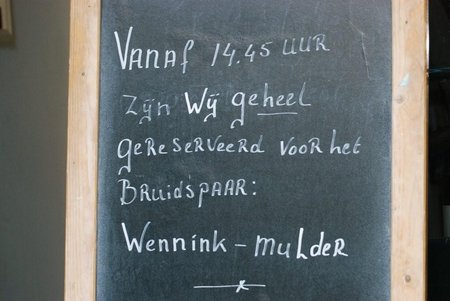 Vanaf 14.45 uur
zijn wij geheel
gereserveerd voor het
Bruidspaar:
Wennink - Mulder